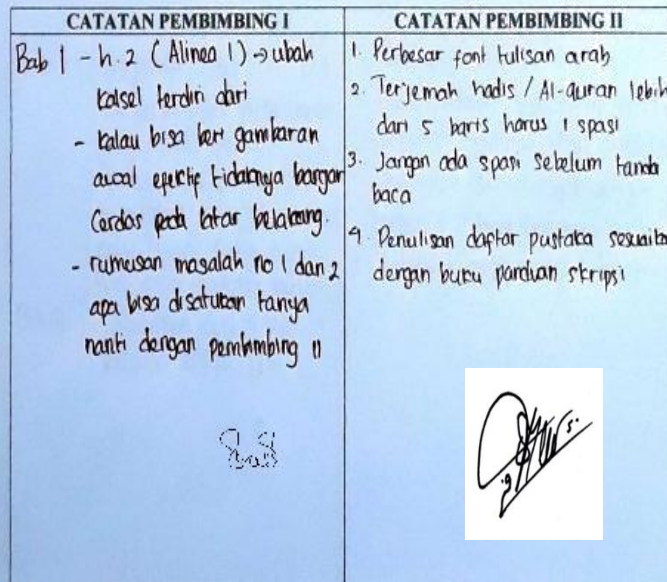 CATATAN PEMBIMBING I
Bab 1 - h. 2 (Alinea 1) → ubah
Kalsel terdiri dari
- kalau bisa beri gambaran
awal efektif tidaknya bargar
Cerdas pada latar belakang.
- rumusan masalah no 1 dan 2
apa bisa disatukan tanya
nanti dengan pembimbing II
CATATAN PEMBIMBING II
1. Perbesar font tulisan arab
2. Terjemah hadis / Al-quran lebih
dari 5 baris harus 1 spasi
3. Jangan ada spasi sebelum tanda
baca
4. Penulisan daftar pustaka sesuaika
dengan buku panduan skripsi